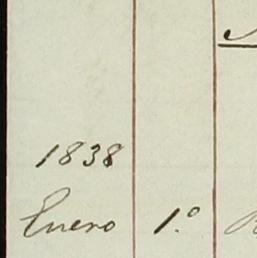 1838
Enero 1.º